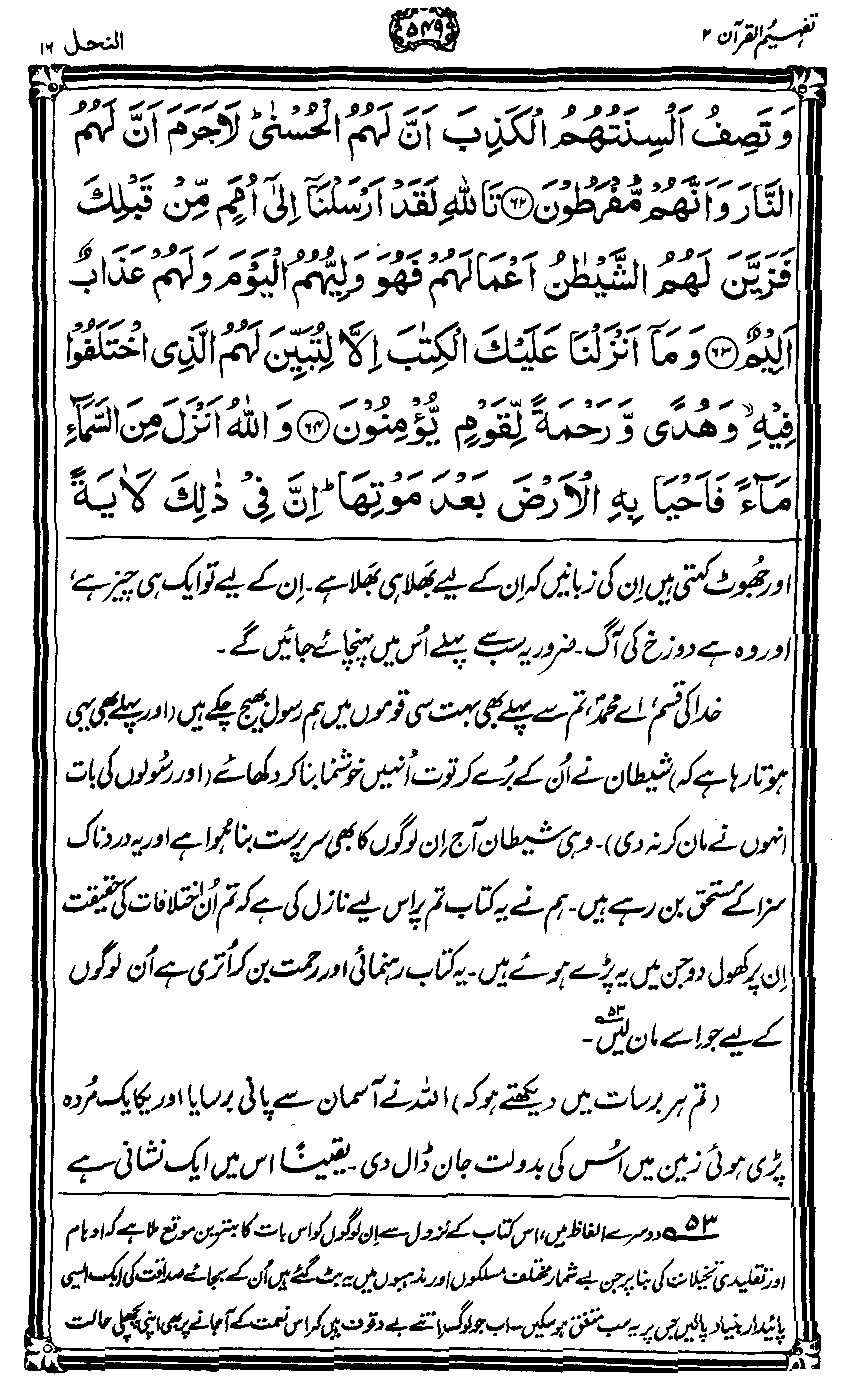 تفہیم القرآن ۲
۵۴۹
النحل ۱۶
وَ تَصِفُ اَلْسِنَتُهُمُ الْكَذِبَ اَنَّ لَهُمُ الْحُسْنٰیؕ لَا جَرَمَ اَنَّ لَهُمُ
النَّارَ وَ اَنَّهُمْ مُّفْرَطُوْنَ ﴿۶۲﴾ تَاللهِ لَقَدْ اَرْسَلْنَاۤ اِلٰۤی اُمَمٍ مِّنْ قَبْلِكَ
فَزَیَّنَ لَهُمُ الشَّیْطٰنُ اَعْمَالَهُمْ فَهُوَ وَلِیُّهُمُ الْیَوْمَ وَ لَهُمْ عَذَابٌ
اَلِیْمٌ ﴿۶۳﴾ وَ مَاۤ اَنْزَلْنَا عَلَیْكَ الْكِتٰبَ اِلَّا لِتُبَیِّنَ لَهُمُ الَّذِی اخْتَلَفُوْا
فِیْهِۙ وَ هُدًی وَّ رَحْمَةً لِّقَوْمٍ یُّؤْمِنُوْنَ ﴿۶۴﴾ وَ اللهُ اَنْزَلَ مِنَ السَّمَآءِ
مَآءً فَاَحْیَا بِهِ الْاَرْضَ بَعْدَ مَوْتِهَاؕ اِنَّ فِیْ ذٰلِكَ لَاٰیَةً
اور جھُوٹ کہتی ہیں اِن کی زبانیں کہ اِن کے لیے بھَلا ہی بھَلا ہے۔ اِن کے لیے تو ایک ہی چیز ہے،
اور وہ ہے دوزخ کی آگ۔ ضرور یہ سب سے پہلے اُس میں پہنچائے جائیں گے۔
خدا کی قسم، اے محمدؐ، تم سے پہلے بھی بہت سی قوموں میں ہم رسول بھیج چکے ہیں (اور پہلے بھی یہی
ہوتا رہا ہے کہ) شیطان نے اُن کے بُرے کرتوت اُنہیں خوشنما بنا کر دکھائے (اور رسُولوں کی بات
انہوں نے مان کر نہ دی)۔ وہی شیطان آج اِن لوگوں کا بھی سرپرست بنا ہُوا ہے اور یہ دردناک
سزا کے مستحق بن رہے ہیں۔ ہم نے یہ کتاب تم پر اس لیے نازل کی ہے کہ تم اُن اختلافات کی حقیقت
اِن پر کھول دو جن میں یہ پڑے ہوئے ہیں۔ یہ کتاب رہنمائی اور رحمت بن کر اُتری ہے اُن لوگوں
کے لیے جو اِسے مان لیں۵۳۔
(تم ہر برسات میں دیکھتے ہو کہ) اللہ نے آسمان سے پانی برسایا اور یکایک مُردہ
پڑی ہوئی زمین میں اُس کی بدولت جان ڈال دی۔ یقیناً اس میں ایک نشانی ہے
۵۳ دوسرے الفاظ میں، اس کتاب کے نُزول سے اِن لوگوں کو اس بات کا بہترین موقع ملا ہے کہ اوہام
اور تقلیدی تخیلات کی بنا پر جن بے شمار مختلف مسلکوں اور مذہبوں میں یہ بٹ گئے ہیں اُن کے بجائے صداقت کی ایک ایسی
پائیدار بنیاد پالیں جس پر یہ سب متفق ہو سکیں۔ اب جو لوگ اتنے بے وقوف ہیں کہ اس نعمت کے آ جانے پر بھی اپنی پچھلی حالت